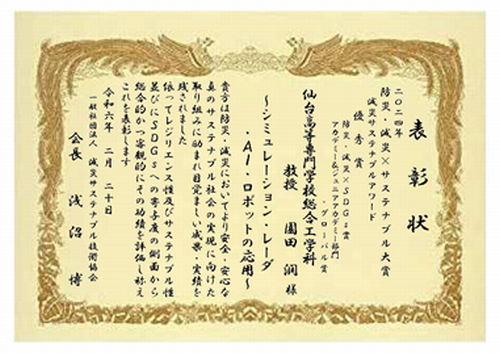 表彰状
二〇二四年
防災・減災×サステナブル大賞
減災サステナブルアワード
優秀賞
防災・減災×SDGs賞
アカデミー&ジュニアアカデミー部門
・グローバル賞
仙台高等専門学校総合工学科
教授 園田 潤 様
～シミュレーション・レーダ
・AI・ロボットの応用～
貴方は防災・減災においてより安全・安心な
真のサステナブル社会の実現に向けた
取り組みに励まれ目覚ましい成果・実績を
残されました
依ってレジリエンス性及びサステナブル性
並びにSDGsへの寄与度の側面から
総合的かつ客観的にその功績を評価し称え
これを表彰します
令和六年 二月 二十日
一般社団法人 減災サステナブル技術協会
会長 浅沼 博